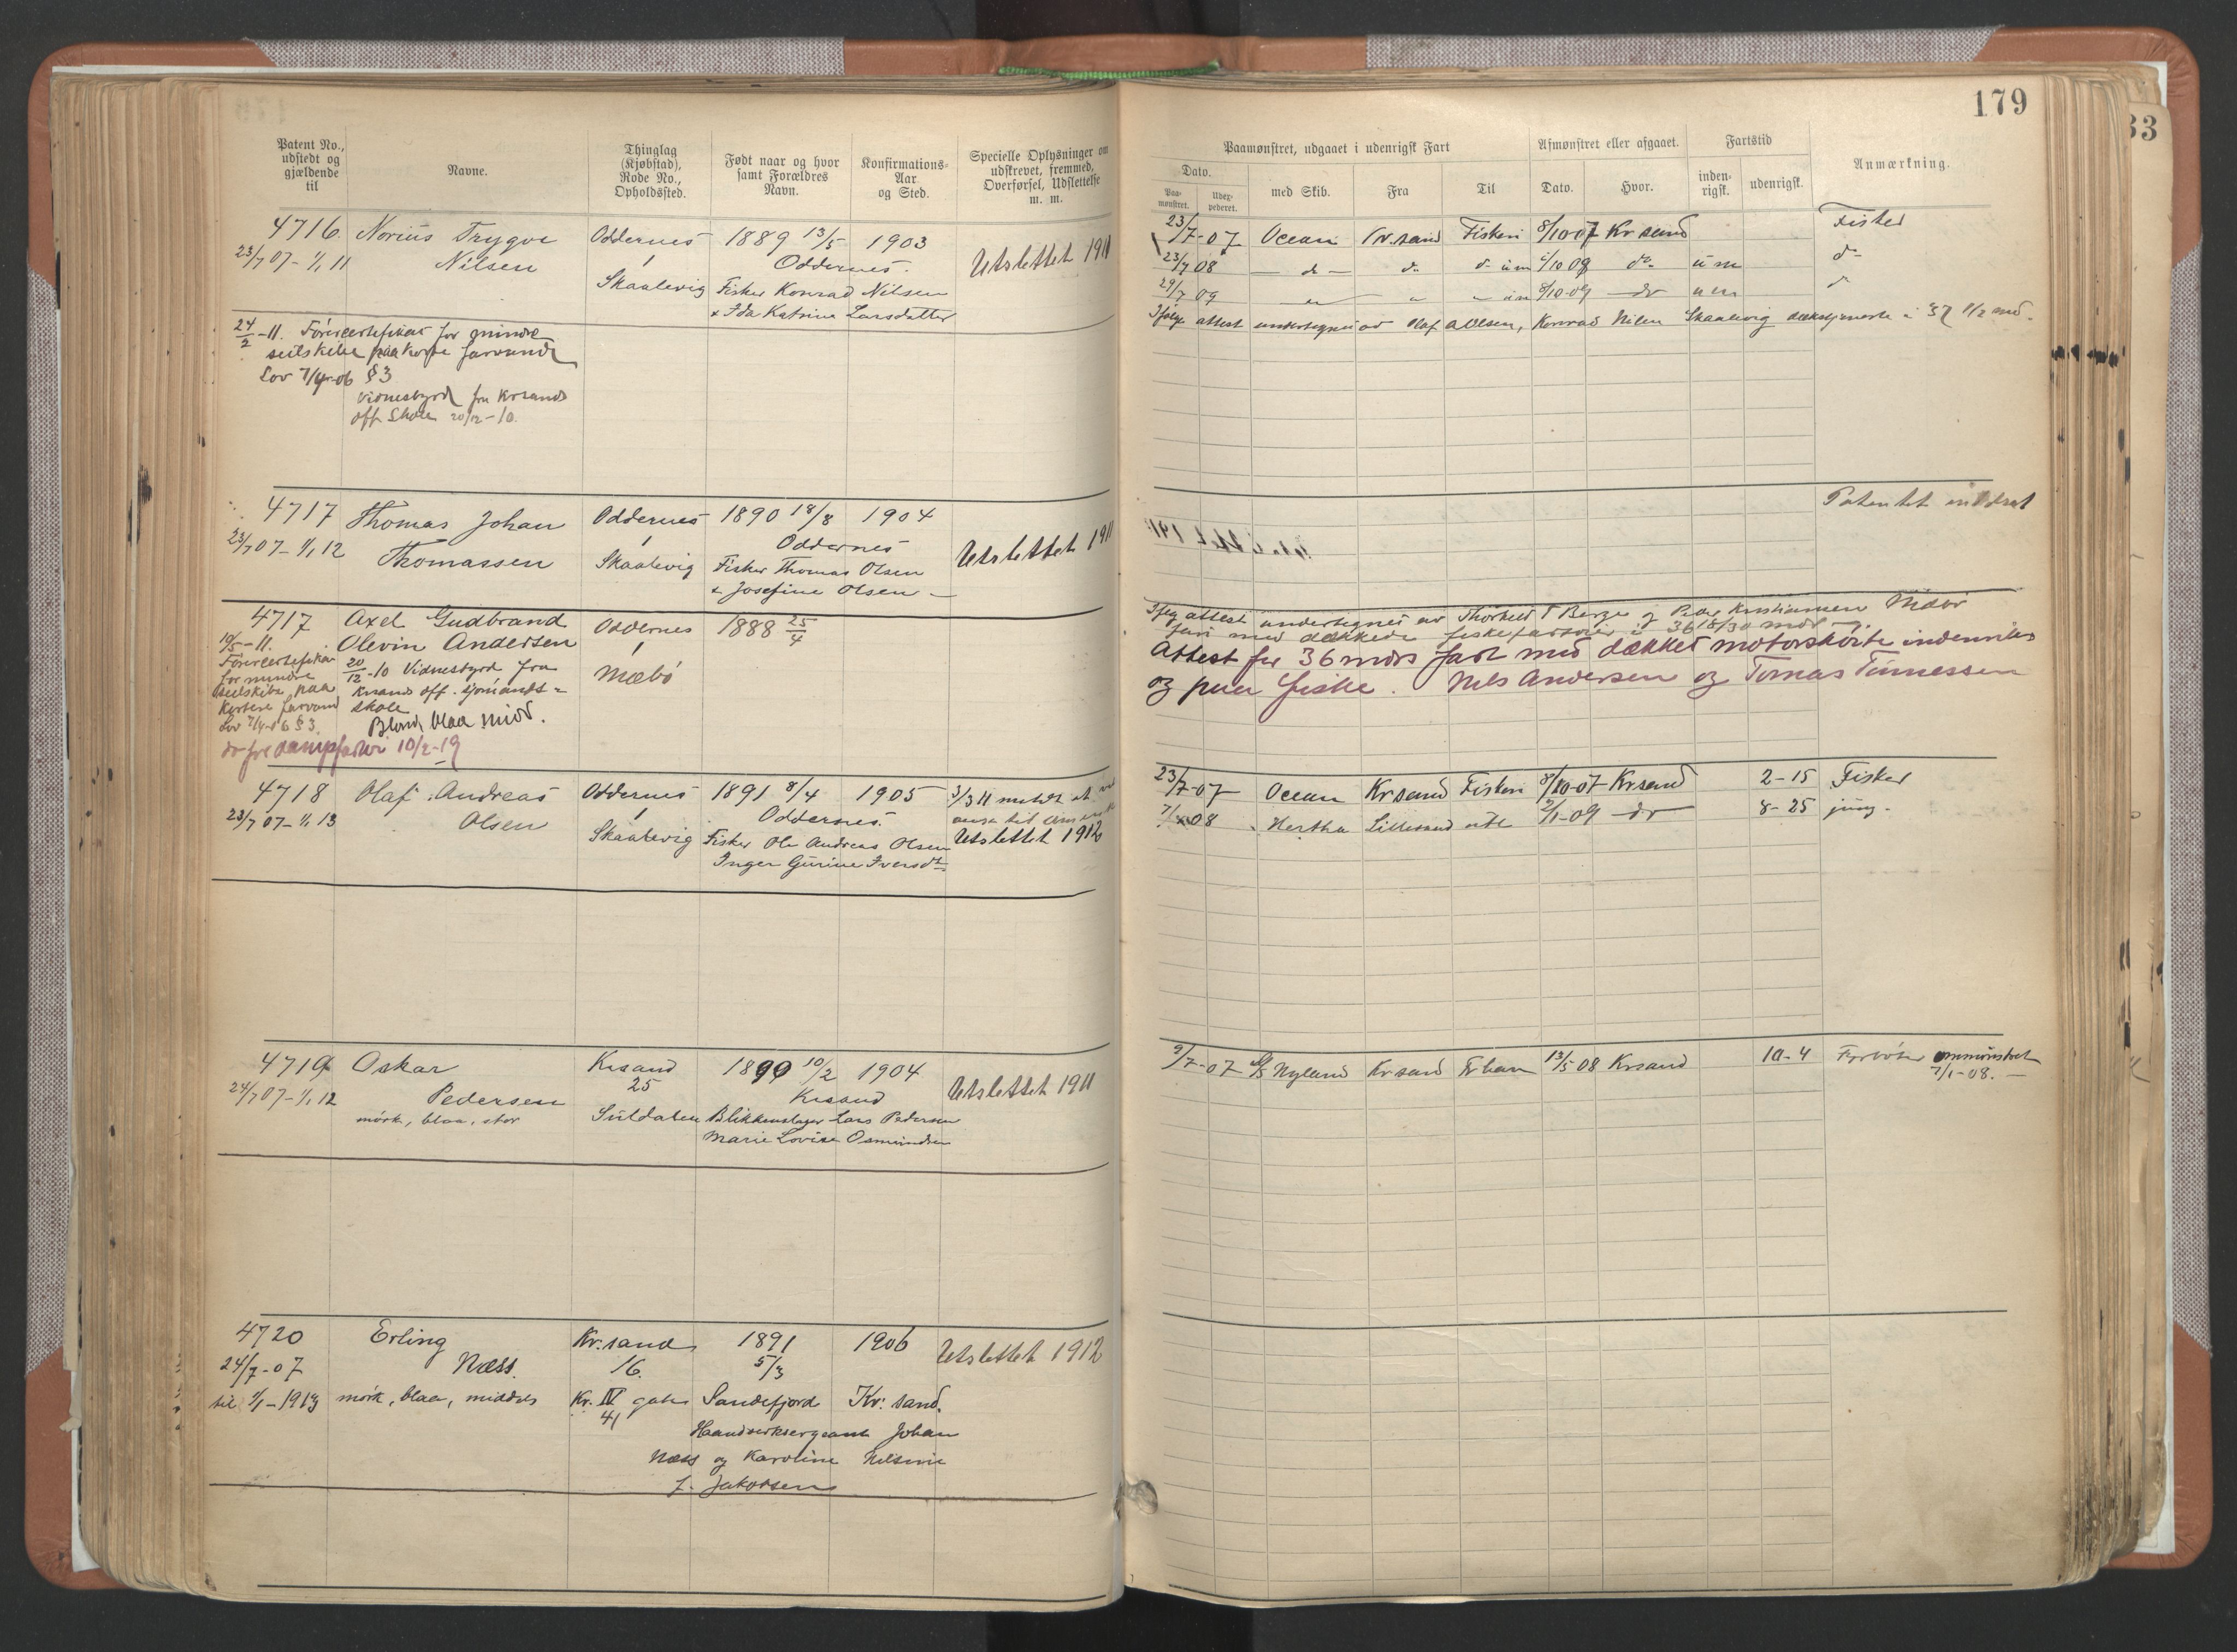 179
33
Patent No., udstedt og gjældende til
Navne.
Thinglag (Kjøbstad), Rode No., Opholdssted.
Født naar og hvor samt Forældres Navn.
Konfirmations-Aar og Sted.
Specielle Oplysninger om udskrevet, fremmed, Overførsel, Udslettelse m. m.
Paamønstret, udgaaet i udenrigsk Fart
Afmønstret eller afgaaet.
Fartstid
Anmærkning.
Dato.
Paa-mønstret.
Udex-pederet.
med Skib.
Fra
Til
Dato.
Hvor.
inden-rigsk.
udenrigsk.
4716 Norius Trygve Oddernes 1889 13/5 1903
23/7 07 - 1/1 11 Nilsen 1 Oddernes. Utslettet 1911
Skaalevig Fisker Konrad Nilsen
& Ida Katrine Larsdatter
24/2 - 11. Førercertifikat for mindre
seilskibe paa kortere farvande
Lov 7/4-06 § 3
Vidnesbyrd fra Krsands
off. Skole 20/12-10.
23/7-07 Ocean Kr.sand Fiskeri 8/10 07 Kr sand Fisker
23/7 08 — do — do 09 do
29/7 09 8/10-09 do
Ifølge attest undertegnet av Olaf A Olsen, Konrad Nilsen Skaalevig 37 1/2 md.
4717 Thomas Johan Oddernes 1890 18/8 1904
23/7 07 - 1/1 12 Thomassen 1 Oddernes Utslettet 1911
Skaalevig Fisker Thomas Olsen
& Josefine Olsen —
Patentet inddrat
4717 Axel Gudbrand Oddernes 1888 25/4
19/5-11. Olevin Andersen 1
Førercertifikat 20/12-10 Vidnesbyrd fra Mæbø
for mindre Krsands off. sjømands-
seilskibe paa skole
kortere farvand
Lov 7/4-06 § 3. Blond, blaa, mid.
do for dampfartøi 10/2-19
Ifølg attest undertegnet av Thorkel T Berge og Peder Kristiansen
fart med dækkede fiskefartøier i 36 18/30 mdr
Attest for 36 mdrs fart med dækket motorskøite indenriks
og paa fiske. Nils Andersen og Tomas Tønnessen
4718 Olaf Andreas Oddernes 1891 8/4 1905
23/7 07 - 1/1 13 Olsen 1 Oddernes.
Skaalevig Fisker Ole Andreas Olsen Utslettet 1912
Inger Gurine Iversdt
23/7-07 Ocean Krsand Fiskeri 8/10-07 Krsand 2-15 Fisker
08 Hertha Lillesand 2/1-09 do 8-25 jung.
4719 Oskar Krsand 1890 10/2 1904
24/7 07 - 1/1 12 Pedersen 25 Krsand Utslettet 1911
mørk, blaa, stor Suldalen Blikkenslager Lars Pedersen
Marie Lovise Osmundsen
9/7-07 Nyland Kr sand 13/5 08 Krsand 10-4 Fyrbøter ommønstret
7/1-08. —
4720 Erling Kr.sand 1891 1906 Utslettet 1912
24/7-07 Næss. 16. 5/3
til 1/1-1913 mørk, blaa, middels Kr. IV gate Sandefjord Kr. sand.
41 Haandverksergeant Johan
Næss og Karoline Nilsine
f. Jakobsen